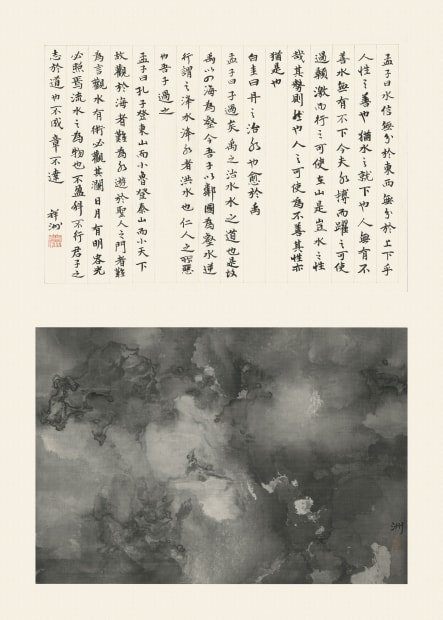 孟子曰水信無分於東西無分於上下乎
人性之善也猶水之就下也人無有不
善水無有不下今夫水搏而躍之可使
過顙激而行之可使在山是豈水之性
哉其勢則然也人之可使為不善其性亦
猶是也
白圭曰丹之治水也愈於禹
孟子曰子過矣禹之治水水之道也是故
禹以四海為壑今吾子以鄰國為壑水逆
行謂之洚水洚水者洪水也仁人之所惡
也吾子過之
孟子曰孔子登東山而小魯登泰山而小天下
故觀於海者難為水遊於聖人之門者難
為言觀水有術必觀其瀾日月有明容光
必照焉流水之為物也不盈科不行君子之
志於道也不成章不達
祥洲
洲